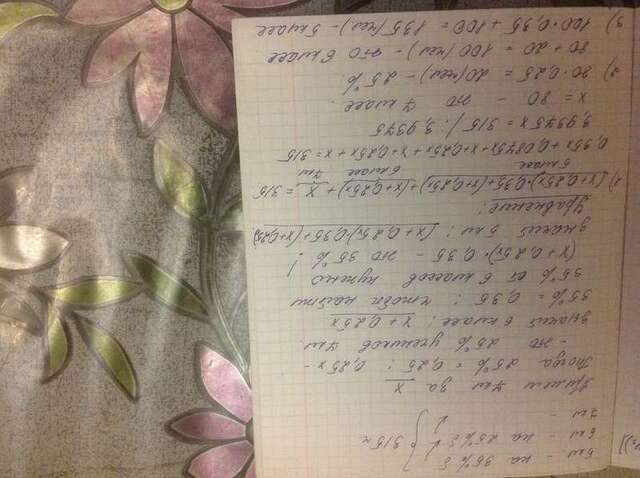 5 кл. - на 35% б
6 кл - на 25% б } 315 ч
7 кл -
Примем 7 кл за x
Тогда 25% = 0,25 : 0,25x -
- это 25% учеников 7 кл
значит 6 класс: x + 0,25x
35% = 0,35 : чтобы найти
35% от 6 классов нужно
(x + 0,25x)·0,35 - это 35% !
значит 5 кл: (x + 0,25x)·0,35 + (x+0,25x).
Уравнение:
1) (x+0,25x)·0,35+(x+0,25x)+(x+0,25x)+x = 315
5 класс 6 класс 7 кл.
0,35x + 0,0875x + x + 0,25x + x + 0,25x + x = 315
3,9375 x = 315 /: 3,9375
x = 80 - это 7 класс.
2) 80·0,25 = 20 (чел) - 25%
80 + 20 = 100 (чел) - это 6 класс
3) 100·0,35 + 100 = 135 (чел) - 5 класс